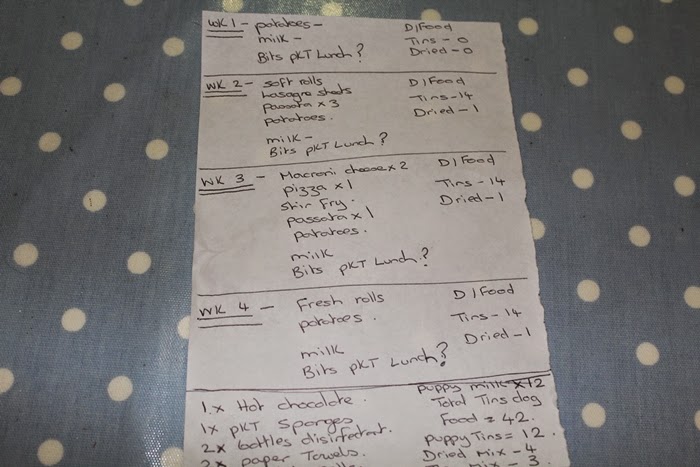 WK 1 - potatoes - D/Food
milk - Tins - 0
Bits pKT Lunch? Dried - 0
WK 2 - soft rolls D/Food
Lasagne sheets
passata x 3 Tins - 14
potatoes. Dried - 1
milk -
Bits pKT Lunch?
WK 3 - Macroni cheese x 2 D/Food
pizza x 1
Stir Fry. Tins - 14
passata x 1 Dried - 1
potatoes.
milk
Bits pKT Lunch?
WK 4 - Fresh rolls D/Food
potatoes. Tins - 14
milk Dried - 1
Bits pKT Lunch?
1 x Hot chocolate. puppy milk x 12
1x pKT sponges Total Tins dog
2x bottles disinfectant. Food = 42.
paper Towels. puppy Tins = 12.
Dried mix - 4
mix - 3